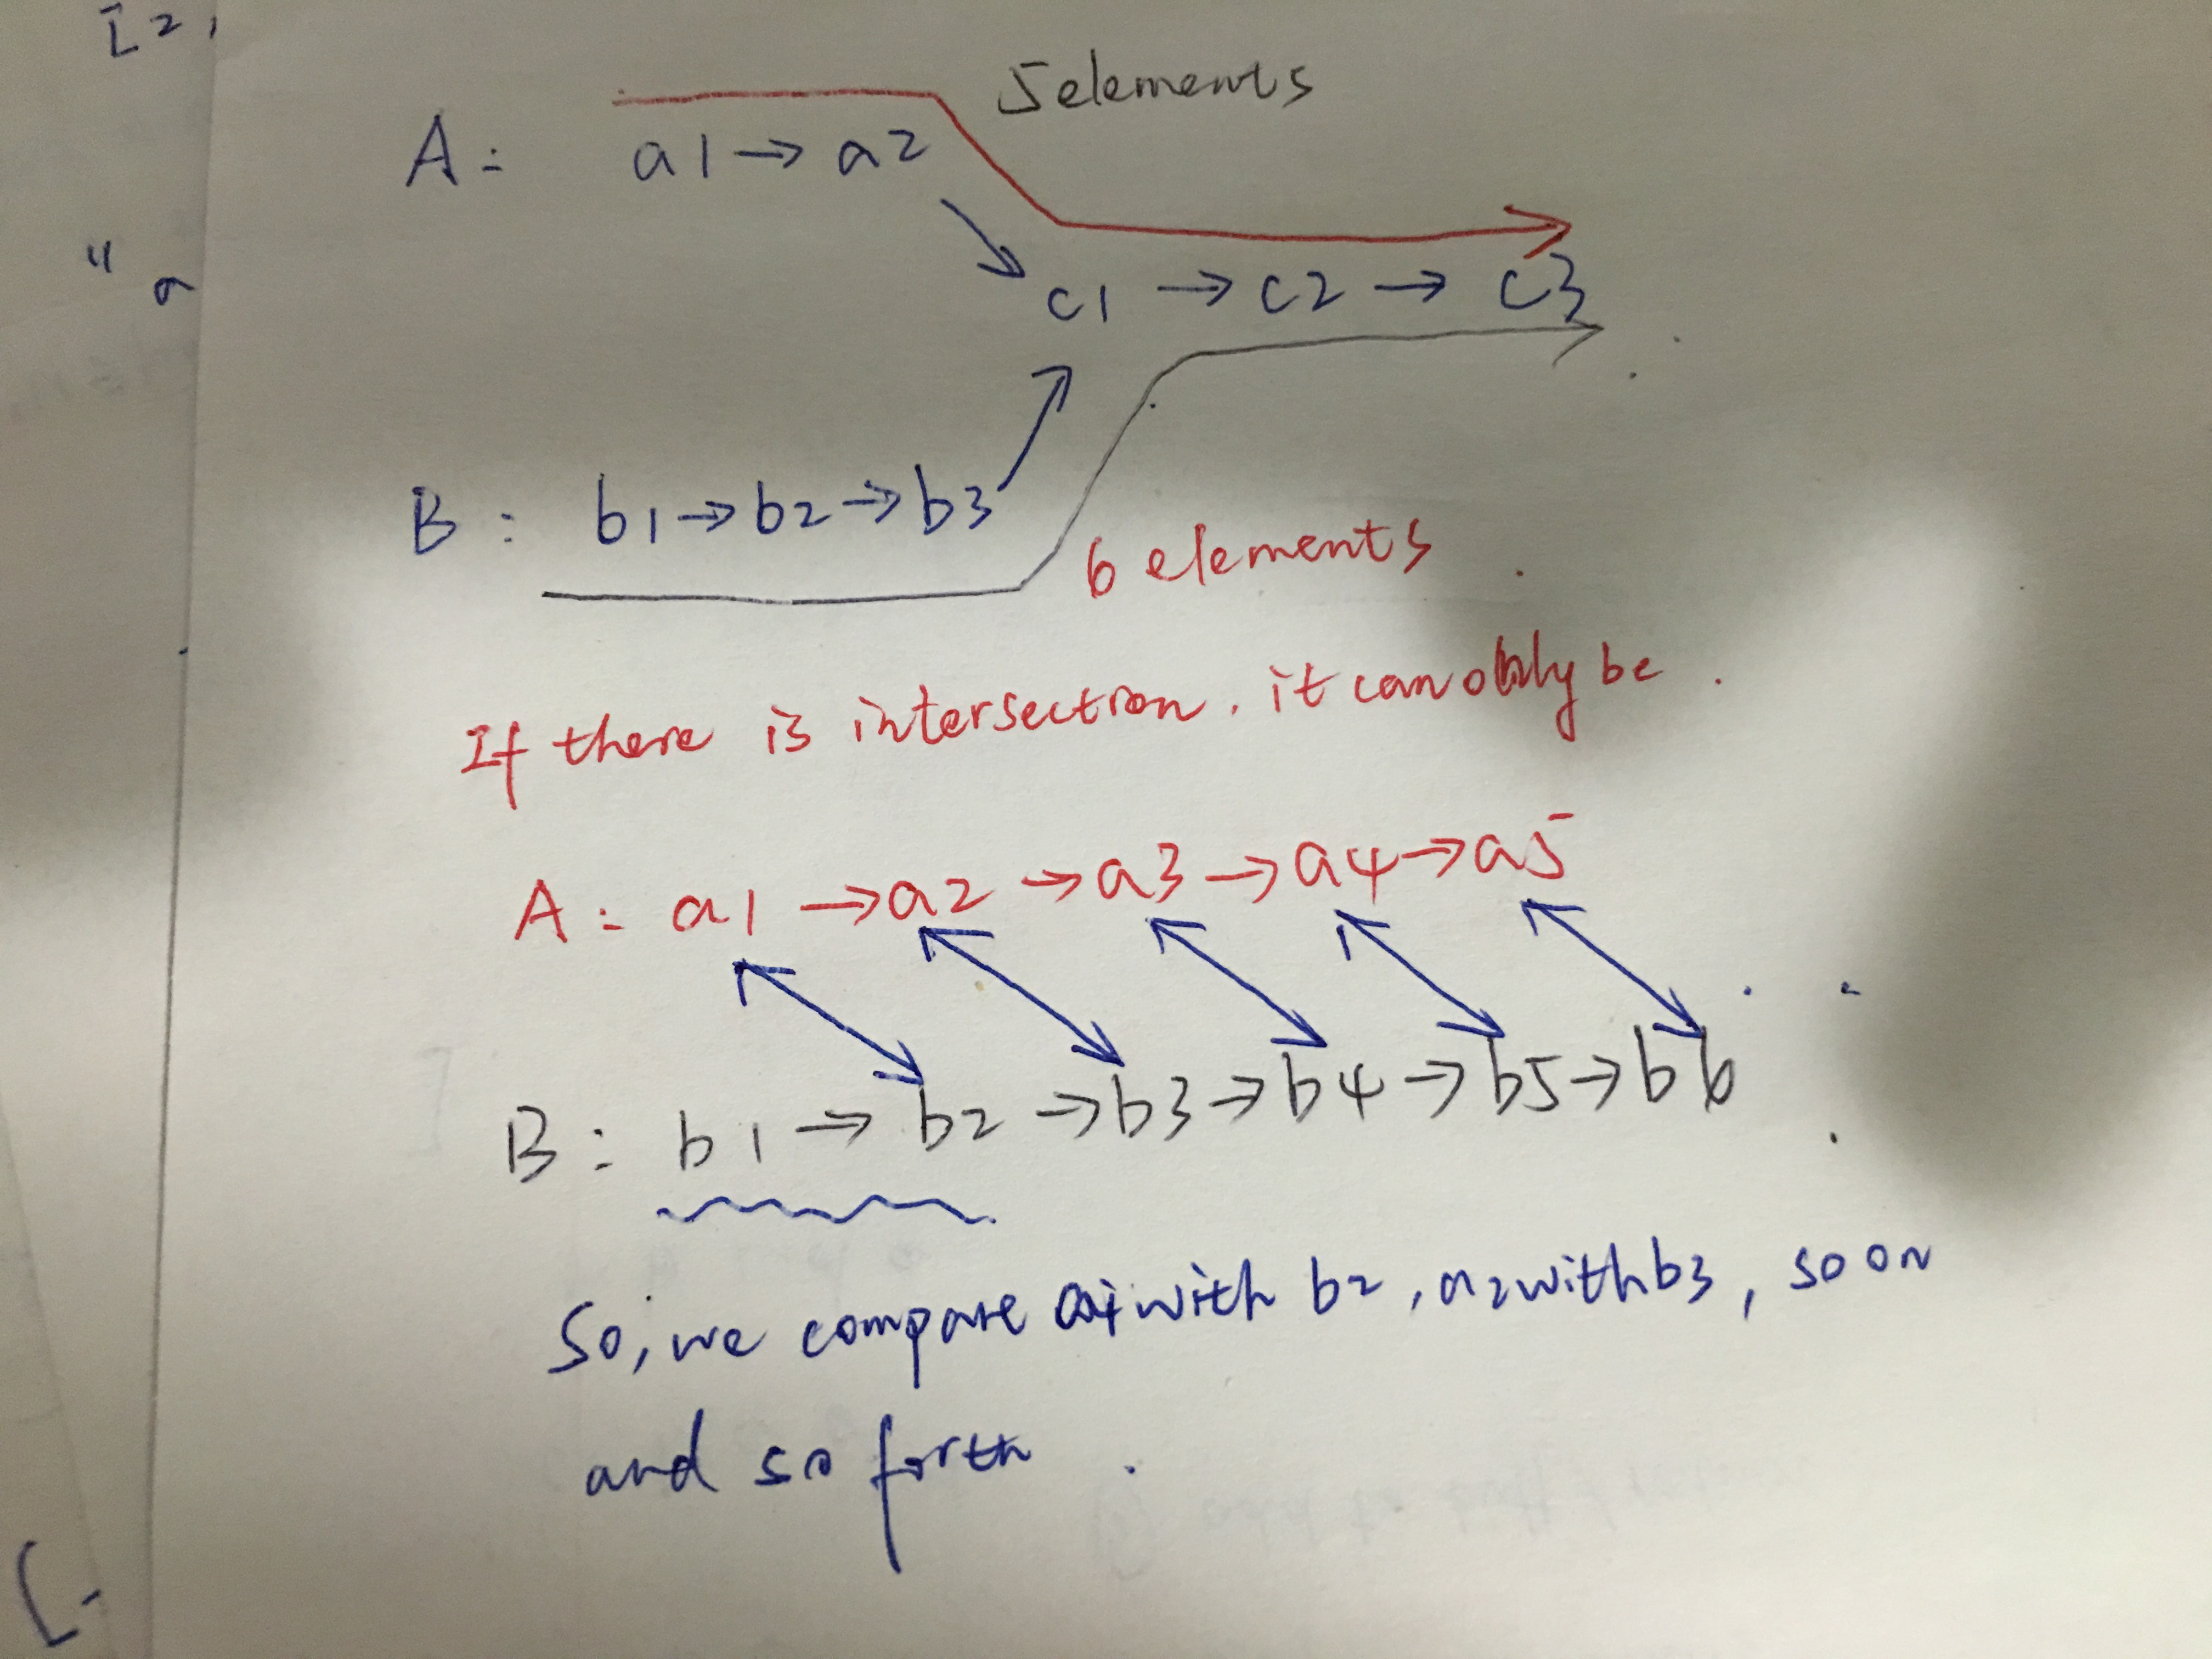 5 elements
A: a1 → a2
c1 → c2 → c3
B: b1 → b2 → b3
6 elements
If there is intersection, it can only be
A: a1 → a2 → a3 → a4 → a5
B: b1 → b2 → b3 → b4 → b5 → b6
So, we compare a1 with b2, a2 with b3, so on
and so forth.